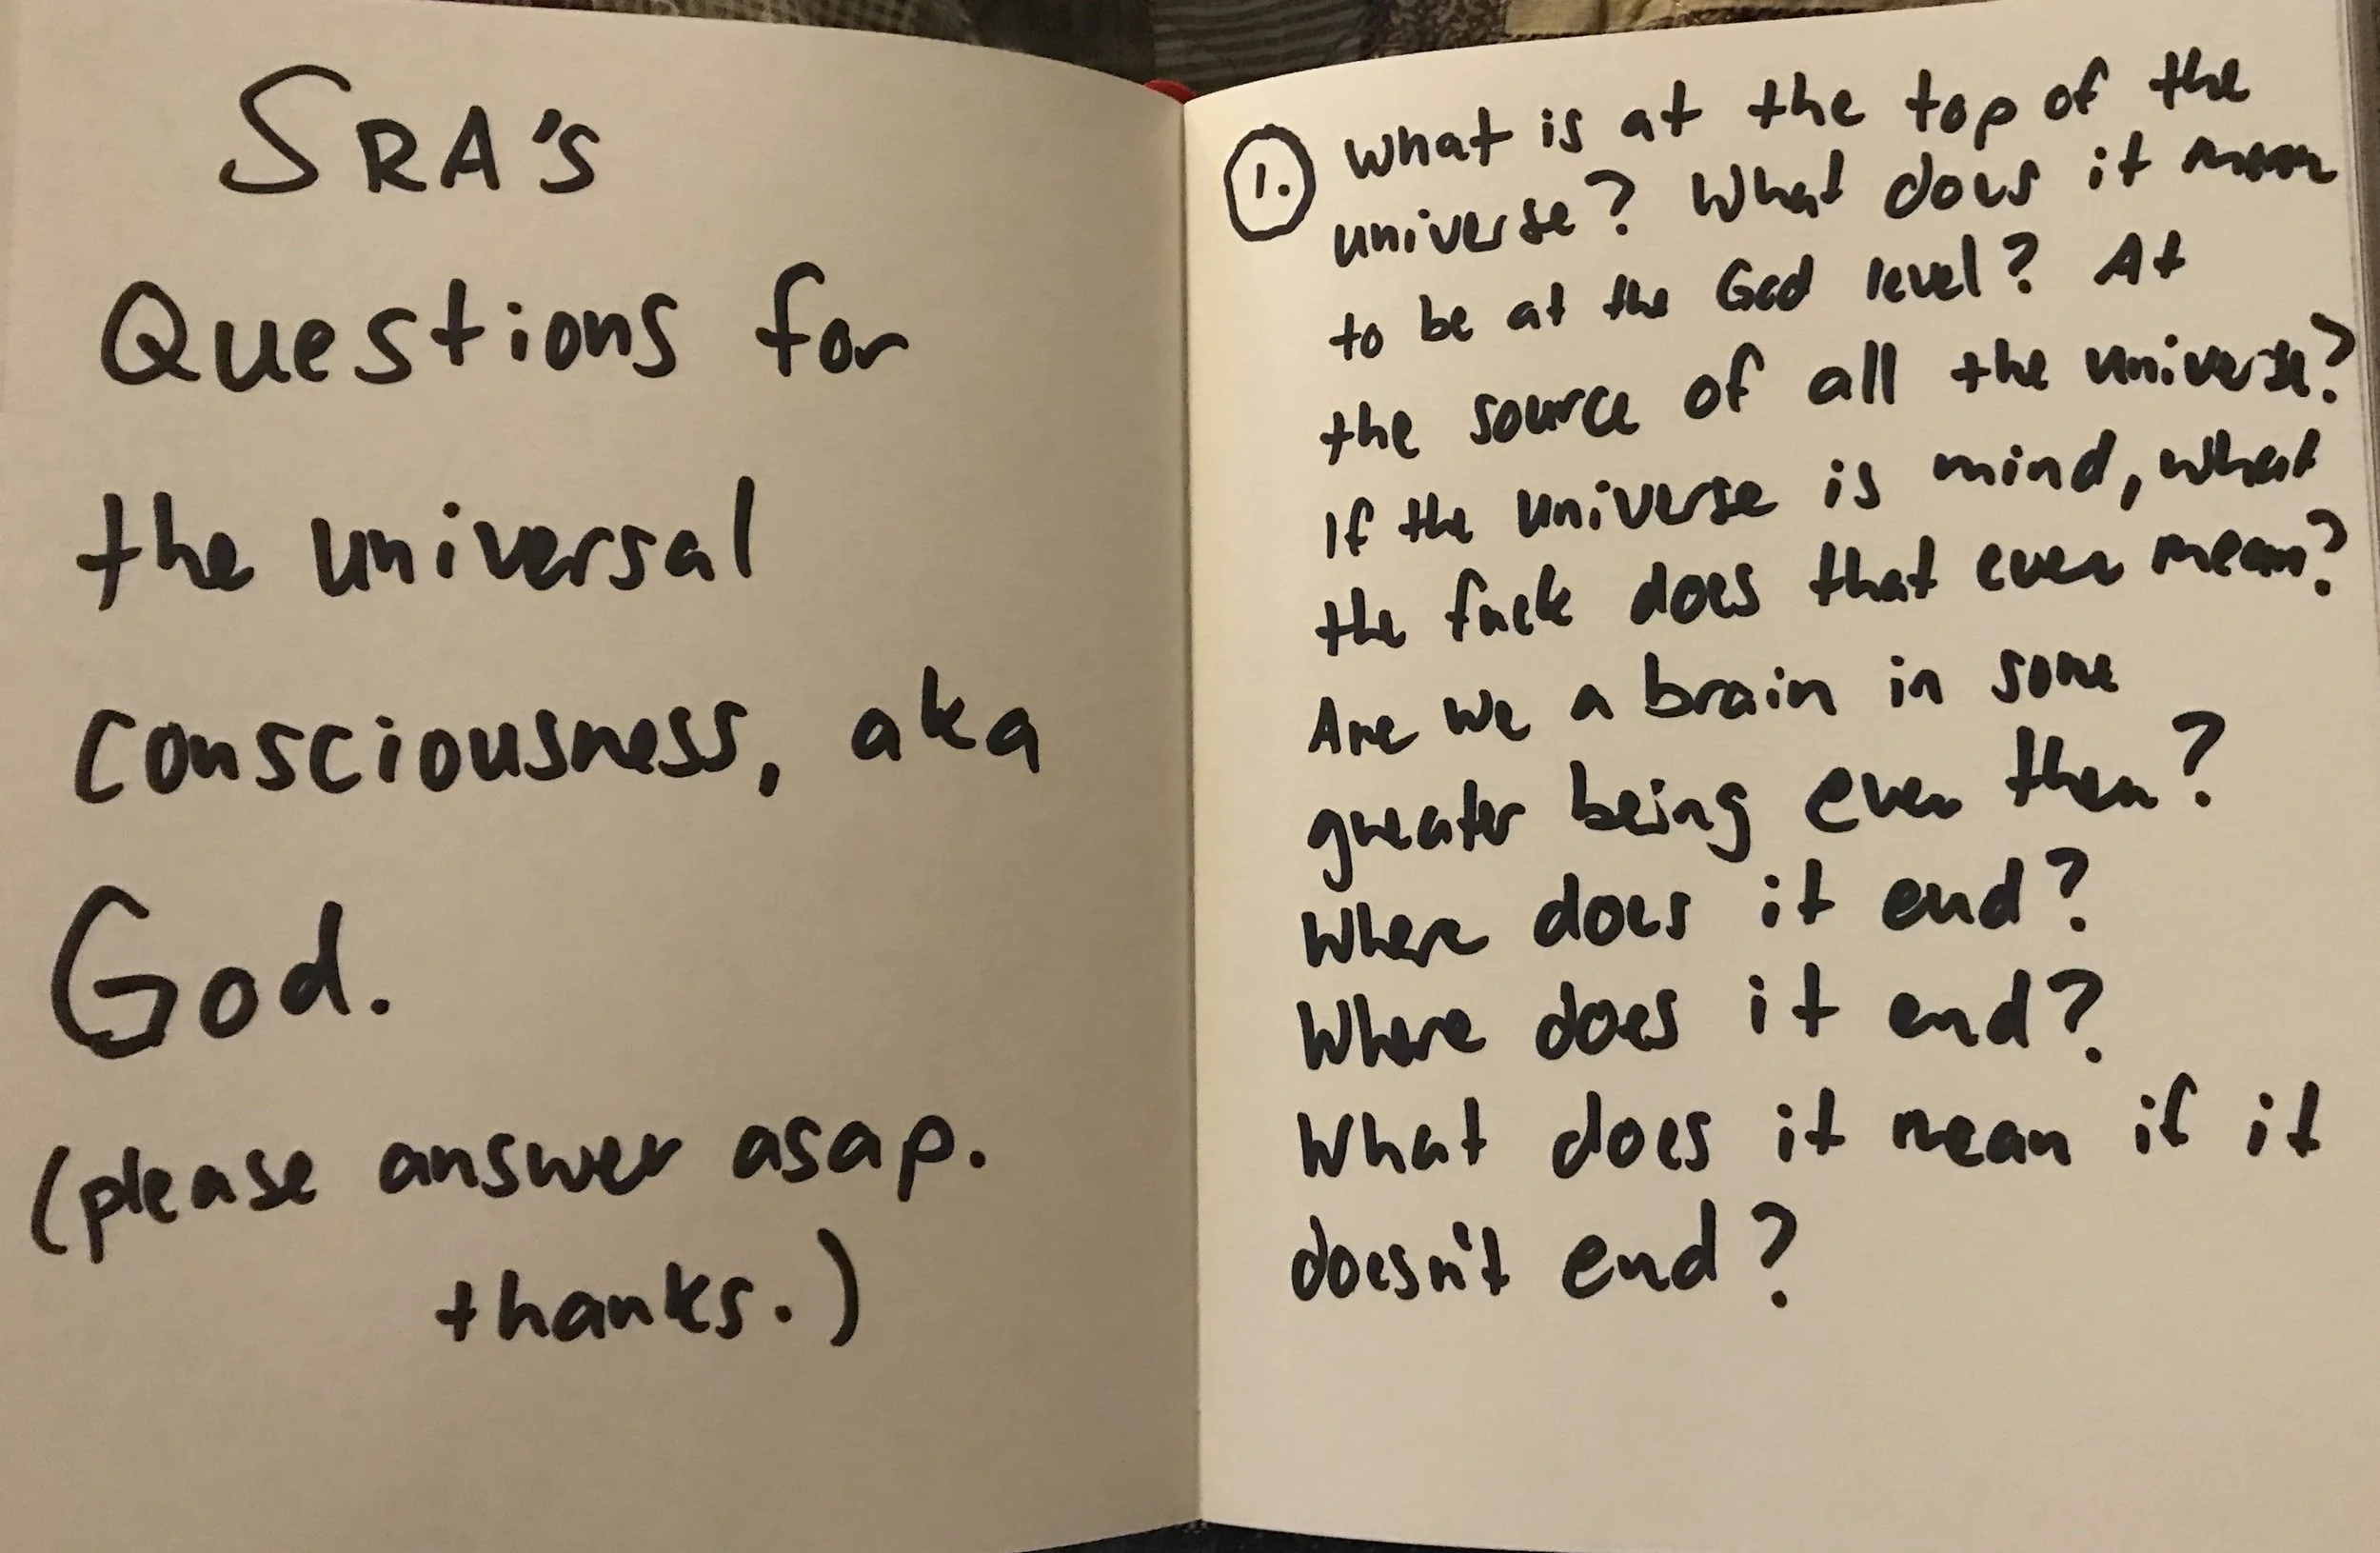 SRA's
Questions for
the universal
consciousness, aka
God.
(please answer asap.
thanks.)
1. What is at the top of the
universe? What does it mean
to be at the God level? At
the source of all the universe?
If the universe is mind, what
the fuck does that even mean?
Are we a brain in some
greater being even then?
Where does it end?
Where does it end?
What does it mean if it
doesn't end?